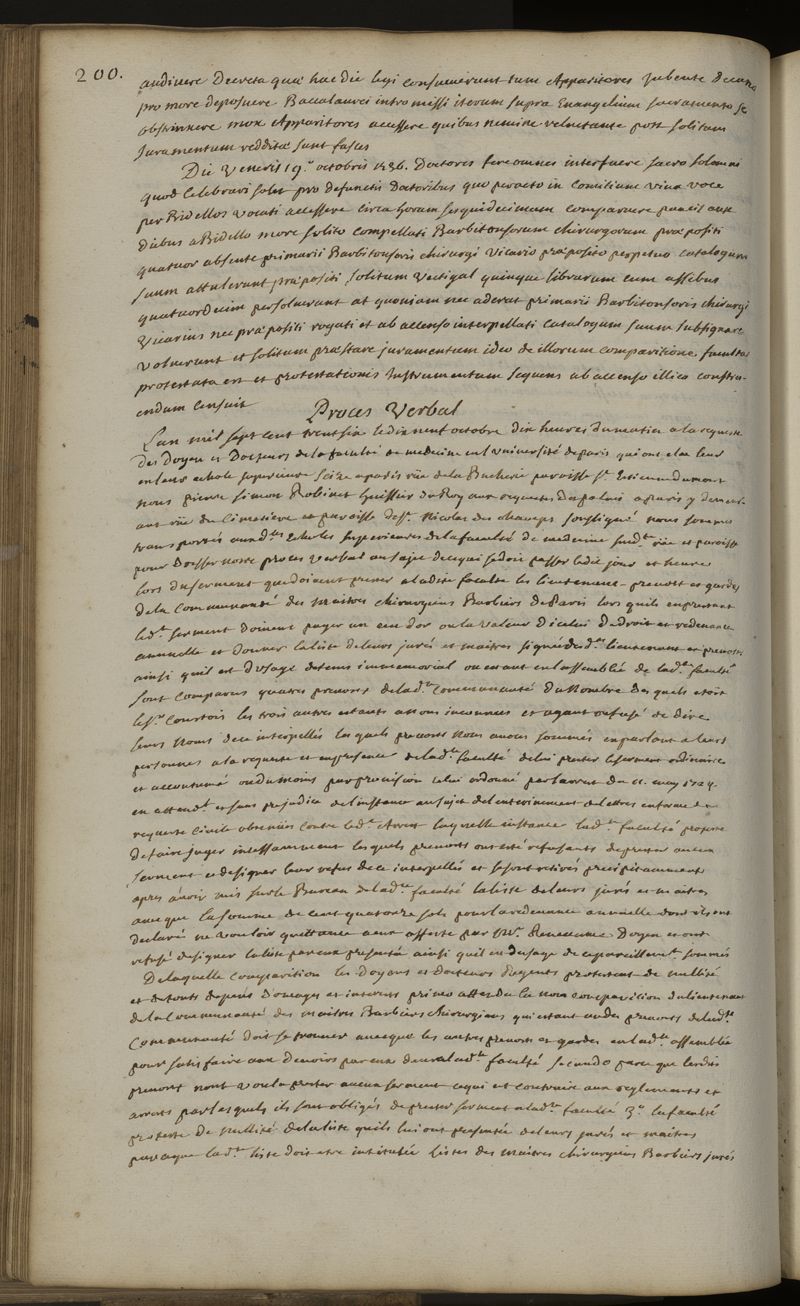 200.
audivere Decreta quæ hac die legi consueverunt tum Apparitores jubente Decano
pro more deposuere Baccalaurei intro missi iterum supra Evangelium sacramento se
obstrinxere mox Apparitores accessere quibus nemine reluctante post solitum
Juramentum redditæ sunt fasces
Die Veneris 19.a octobris 1736. Doctores fere omnes interfuere sacro solemni
quod Celebrari solet pro defunctis doctoribus quo peracto in Consilium viva voce
per Bidellos vocati accessere circa horam sesquidecimam comparuere paucis ante
diebus a Bidello more solito compellati Barbitonsorum chirurgorum præpositi
quatuor absente primarii Barbitonsoris chirurgi Vicario præposito perpetuo Catalogum
suum attulerunt præpositi solitum vectigal quinque librarum cum assibus
quatuordecim persolverunt at quoniam nec aderat primarii Barbitonsoris chirurgi
Vicarius nec præpositi rogati et ab accenso interpellati Catalogum suum subsignare
voluerunt et solitum præstare juramentum ideo de illorum comparitione facultas
protestata est et protestationis Instrumentum sequens ab accenso illico constru-
endum censuit
Proces Verbal
L'an mil sept cent trent six le dix neuf octobre dix heures du matin a la requeste
des Doyen et Docteurs de la faculté de medecine en l'université de paris qui ont elu leur
en leur echole superieure scize a paris rüe de la Bucherie paroisse St. Estienne du mont
nous pierre simon Robinet huissier du Roy aux requetes du palais a paris y demeur-
ant rüe du Cimetiere et paroisse de St. Nicolas des champs soussigné nous sommes
transportés auxd.tes Echolles superieures de la faculté de medecine susd.te rüe et paroisse
pour dresser nostre proces verbal au sujet de ce qui se doit passer ledit jour et heure
lors du serment que doivent prester a ladite faculté les lieutenent prevost et gardes
de la Communauté des maitres chirurgiens Barbiers de Paris lors qu'ils en prestant
led.t serment doivent payer un ecu d'or ou la valeur d'icelui de droit et redevance
annuelle et donner la liste de leurs jurés et maitres signée desd.ts lieutenent et prevosts
ainsi qu'il est d'usage de tems immemorial ou estant en l'assemblée de lad.te faculté
sont comparus quatre prevosts de lad.te Communauté du Nombre des quels etoit
le Sr. Courtois les trois autres estants a nous inconnus et ayant refusé de dire
leurs Noms de ce interpellés les quels prevosts Nous avons sommés en parlant a leurs
personnes a la requeste et en presence de lad.te faculté de lui prester le serment ordinaire
et accoutumé ou du moins par provision celui ordonné par l'arrest du 11. may 1724
en attend.t et sans prejudice de l'instance au sujet de l'enterinement de lettres en forme de
requeste civile obtenües contre led.t Arrest laquelle instance lad.te faculté proteste
de faire juger incessamment les quels prevosts ont eté refusants de prester aucun
serment et de signer leur refus de ce interpellés et se sont retirés precipitamment
apres avoir mis sur le Bureau de lad.te faculté la liste de leurs jurés et maitres
avec que la somme de cent quatorze sols pour la redevance annuelle dont ils ont
declaré ne vouloir quittance a eux offerte par Mr. Doyen et ont
refusé de signer la liste par eux presentée ainsi qu'il en d'usage de ce pareillem.t sommés
De laquelle comparition les Doyens et docteurs Regents protestent de nullité
et de touts depens domages et interests primo attendu la non comparition du lieutenant
de la Communauté des maitres Barbiers chirurgiens qui estant un des prevosts de lad.te
Communauté doit se trouver avecque les autres prevosts et gardes en lad.te assemblée
pour satisfaire aux devoirs par eux deus a lad.te faculté secundo parce que lesdits
prevosts n'ont voulu prester aucun serment ce qui est contraire aux reglements et
arrests par lesquels ils sont obligés de prester serment a lad.te faculté 3.o la faculté
proteste de Nullité de la liste qu'ils lui ont presentée de leurs jurés et maitres
par ce que lad.te liste doit etre intitulée listes des maitres chirurgiens Barbiers jurés